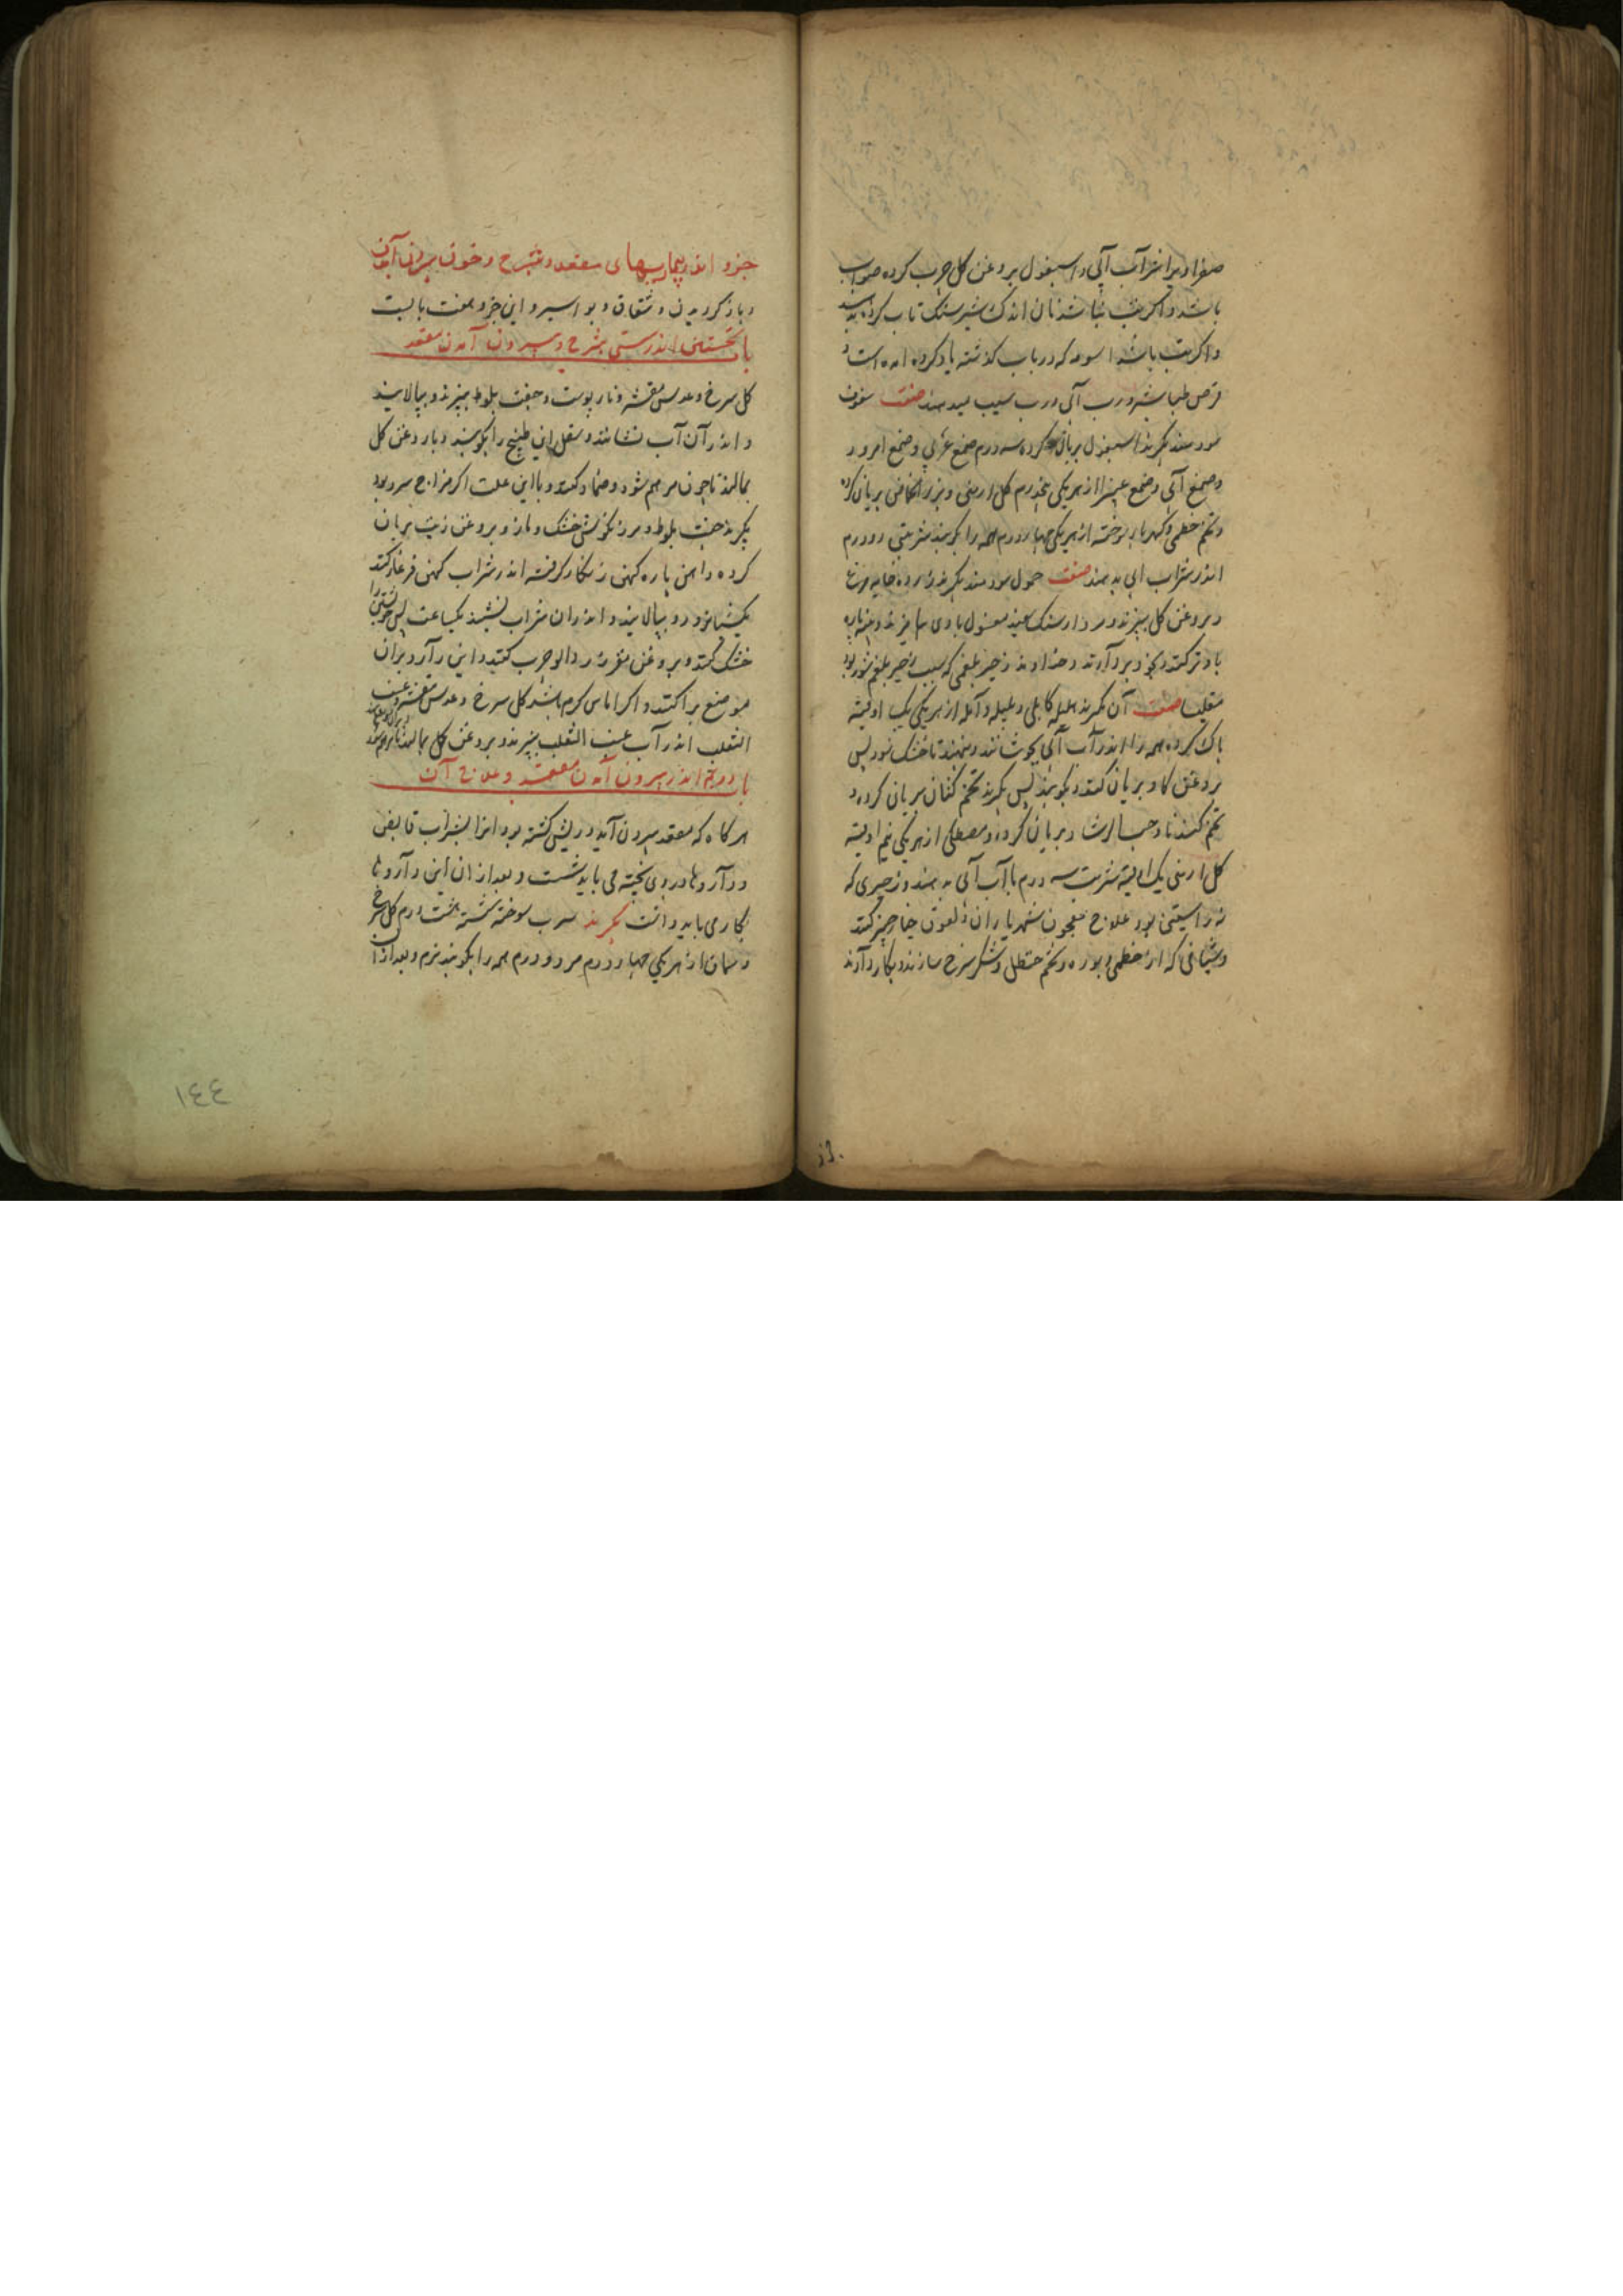 صفرا و برا شراب آبی و اسبغول بروغن کل چرب کرده صواب
باشد و اکر تب نباشد نان اندک شیر سنک تاب کرده بدهند
و اکر تب باشد اسوبه که در باب کذشته یاد کرده امده است و
قرص طباشیر و رب آبی و رب سیب میدهند صفت سفوف
سودمند بکیرند اسبغول بریان کرده سه درم صمغ عربی و صمغ امرود
و صمغ آبی و صمغ از هر یکی پنجدرم کل ارمنی و بزر بریان کرده
و تخم خطمی و کهربا سوخته از هر یکی چهار درم همه را بکوبند شربتی دو درم
اندر شراب ابی بدهند صفت حمول سودمند بکیرند زرده خایه مرغ
و بروغن کل بپزند و مردارسنک سفید مغسول با وی بیامیزند و پنبه پاره
بدو تر کنند و بخود بردارند و خداوند زحیر بلغمی که سبب زحیر بلغم شور بود
مقلیاثا صفت آن بکیرند هلیله کابلی و بلیله و آمله از هر یکی یک اوقیه
پاک کرده همه را اندر آب آبی بجوشانند و بنهند تا خشک شود پس
بروغن کاو بریان کنند و بکوبند پس بکیرند تخم کتان بریان کرده و
تخم کندنا و حب الرشاد بریان کرده و مصطکی از هر یکی نیم اوقیه
کل ارمنی یک اوقیه شربت سه درم با آب آبی بدهند و زحیری که
نه راستینی بود علاج معجون شهریاران و لعوق خیارچنبر کنند
و شیافی که از خطمی و بوره و تخم حنظل و شکر سرخ سازند و بکار دارند
جزو اندر بیماریهای مقعد و شرج و خون بیرون آمدن
و باز کردیدن و شقاق و بواسیر و این جزو هفت بابست
باب نخستین اندر سستی شرج و بیرون آمدن مقعد
کل سرخ و عدس مقشر و نار پوست و جفت بلوط بپزند و بپالایند
و اندر آن آب نشانند و ثقل این طبیخ را بکوبند و با روغن کل
بمالند تا چون مرهم شود و ضماد کنند و با این علت اکر مزاج سرد بود
بکیرند جفت بلوط و مرزنکوش خشک و مازو بروغن زیت بریان
کرده و اهن پاره کهن زنکار کرفته اندر شراب کهن فرغار کنند
یکشبانروز و بپالایند و اندران شراب نشیند یکساعت پس خویشتن را
خشک کند و بروغن مغز زردالو چرب کنید و این دارو بران
موضع پراکنند و اکر اماس کرم باشد کل سرخ و عدس مقشر و عنب
الثعلب اندر آب عنب الثعلب بپزند و بروغن کل بمالند تا مرهم شود
باب دوم اندر بیرون آمدن مقعد و علاج آن
هرکاه که مقعد بیرون آید و ریش کشته بود انرا بشراب قابض
و داروها در وی پخته می باید شست و بعد از ان این داروها
بکار می باید داشت بکیرند سرب سوخته شسته هشت درم کل سرخ
و سماق از هر یکی چهار درم مر دو درم همه را بکوبند نرم و بعد از ان
١٤٤